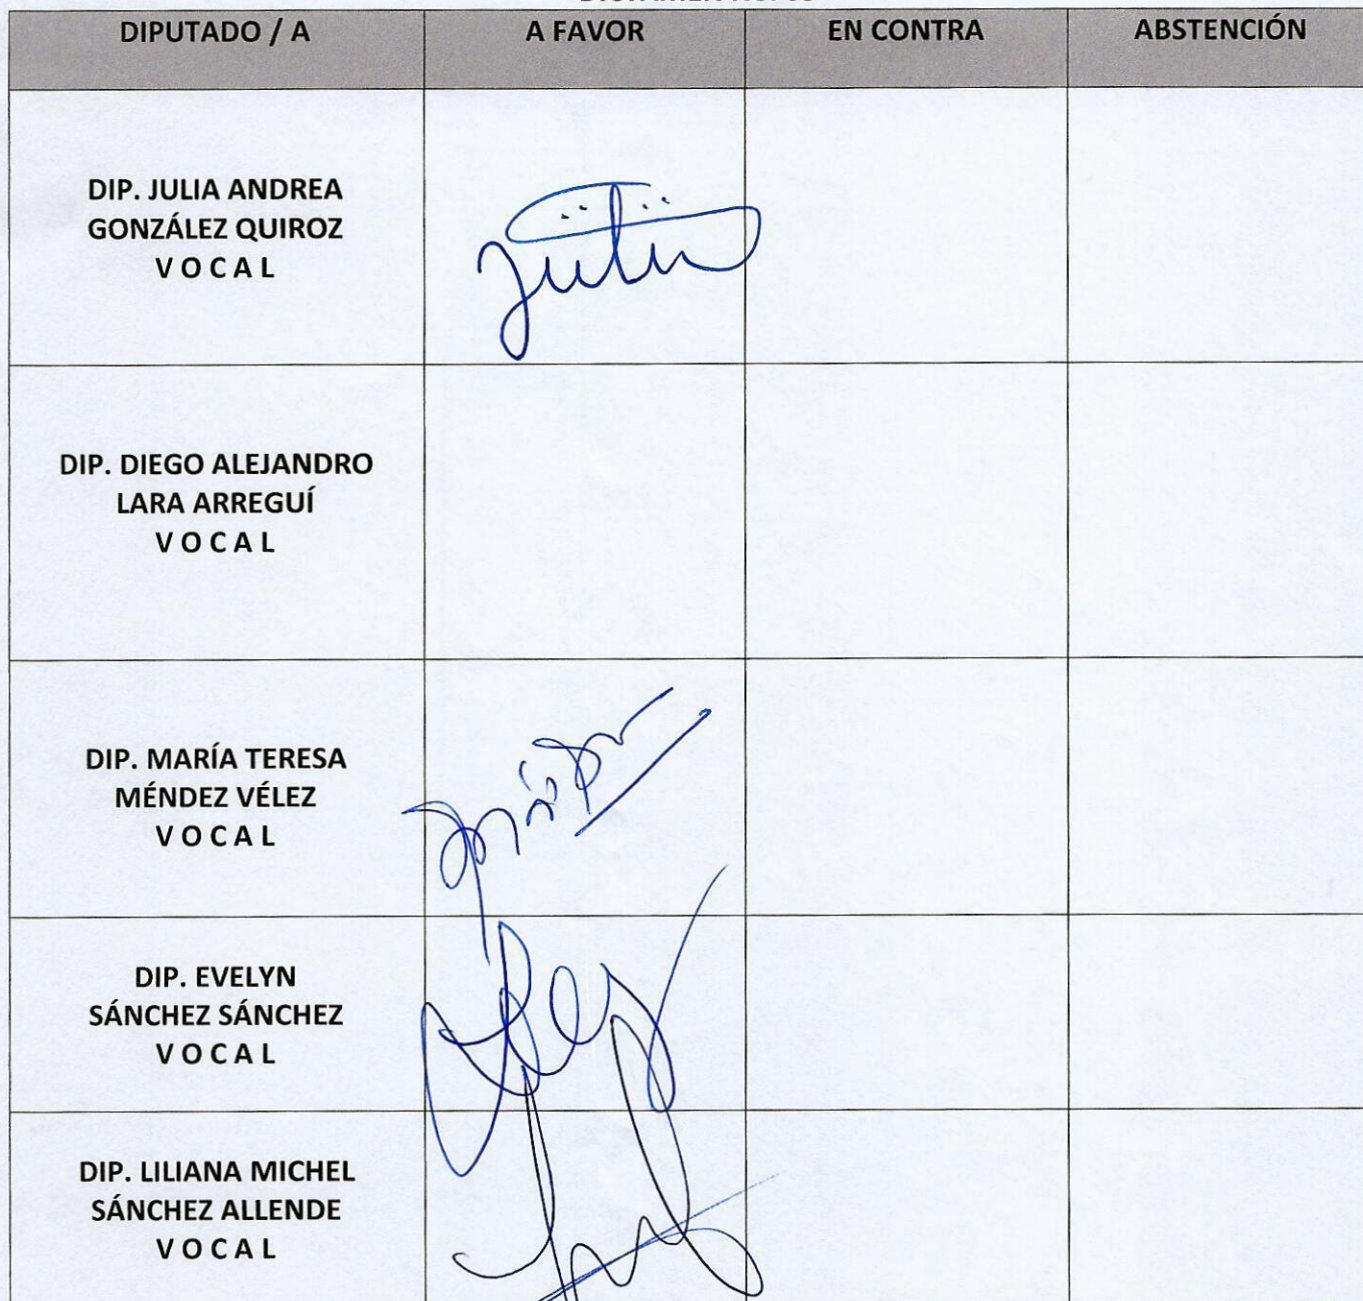 DIPUTADO / A A FAVOR EN CONTRA ABSTENCIÓN
DIP. JULIA ANDREA
GONZÁLEZ QUIROZ
V O C A L
DIP. DIEGO ALEJANDRO
LARA ARREGUÍ
V O C A L
DIP. MARÍA TERESA
MÉNDEZ VÉLEZ
V O C A L
DIP. EVELYN
SÁNCHEZ SÁNCHEZ
V O C A L
DIP. LILIANA MICHEL
SÁNCHEZ ALLENDE
V O C A L